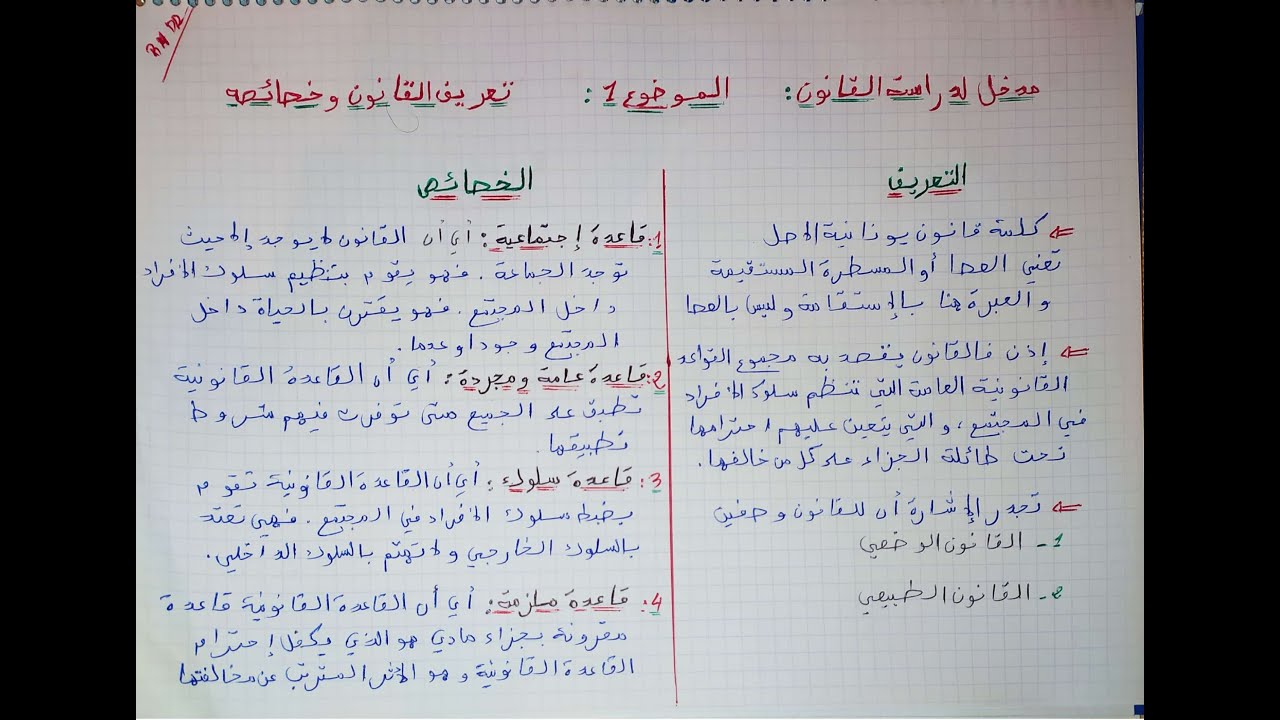 BNDR
مدخل لدراسة القانون: الموضوع 1: تعريف القانون وخصائصه
التعريف
كلمة قانون يونانية الاصل
تعني العصا أو المسطرة المستقيمة
و العبرة هنا بالإستقامة وليس بالعصا
إذن فالقانون يقصد به مجموع القواعد
القانونية العامة التي تنظم سلوك الافراد
في المجتمع، والتي يتعين عليهم احترامها
تحت طائلة الجزاء على كل من خالفها.
تجدر الإشارة أن للقانون وصفين
1- القانون الوضعي
2- القانون الطبيعي
الخصائص
1: قاعدة إجتماعية: أي أن القانون لا يوجد إلا حيث
توجد الجماعة. فهو يقوم بتنظيم سلوك الافراد
داخل المجتمع. فهو يقترن بالحياة داخل
المجتمع وجودا وعدما.
2: قاعدة عامة ومجردة: أي أن القاعدة القانونية
تطبق على الجميع متى توفرت فيهم شروط
تطبيقها.
3: قاعدة سلوك: أي أن القاعدة القانونية تقوم
بضبط سلوك الافراد في المجتمع. فهي تعتد
بالسلوك الخارجي ولا تهتم بالسلوك الداخلي.
4: قاعدة ملزمة: أي أن القاعدة القانونية قاعدة
مقرونة بجزاء مادي هو الذي يكفل إحترام
القاعدة القانونية و هو الأثر المترتب عن مخالفتها